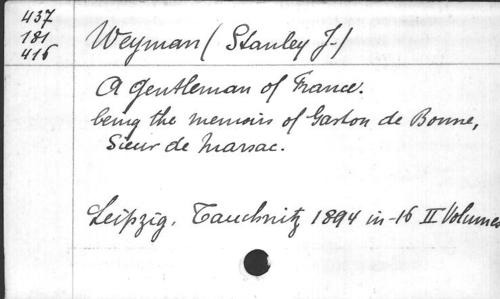 437
181
416
Weyman (Stanley J-)
A Gentleman of France.
being the memoirs of Gaston de Bonne,
Sieur de Marsac.
Leipzig. Tauchnitz 1894 in-16 II Volumes